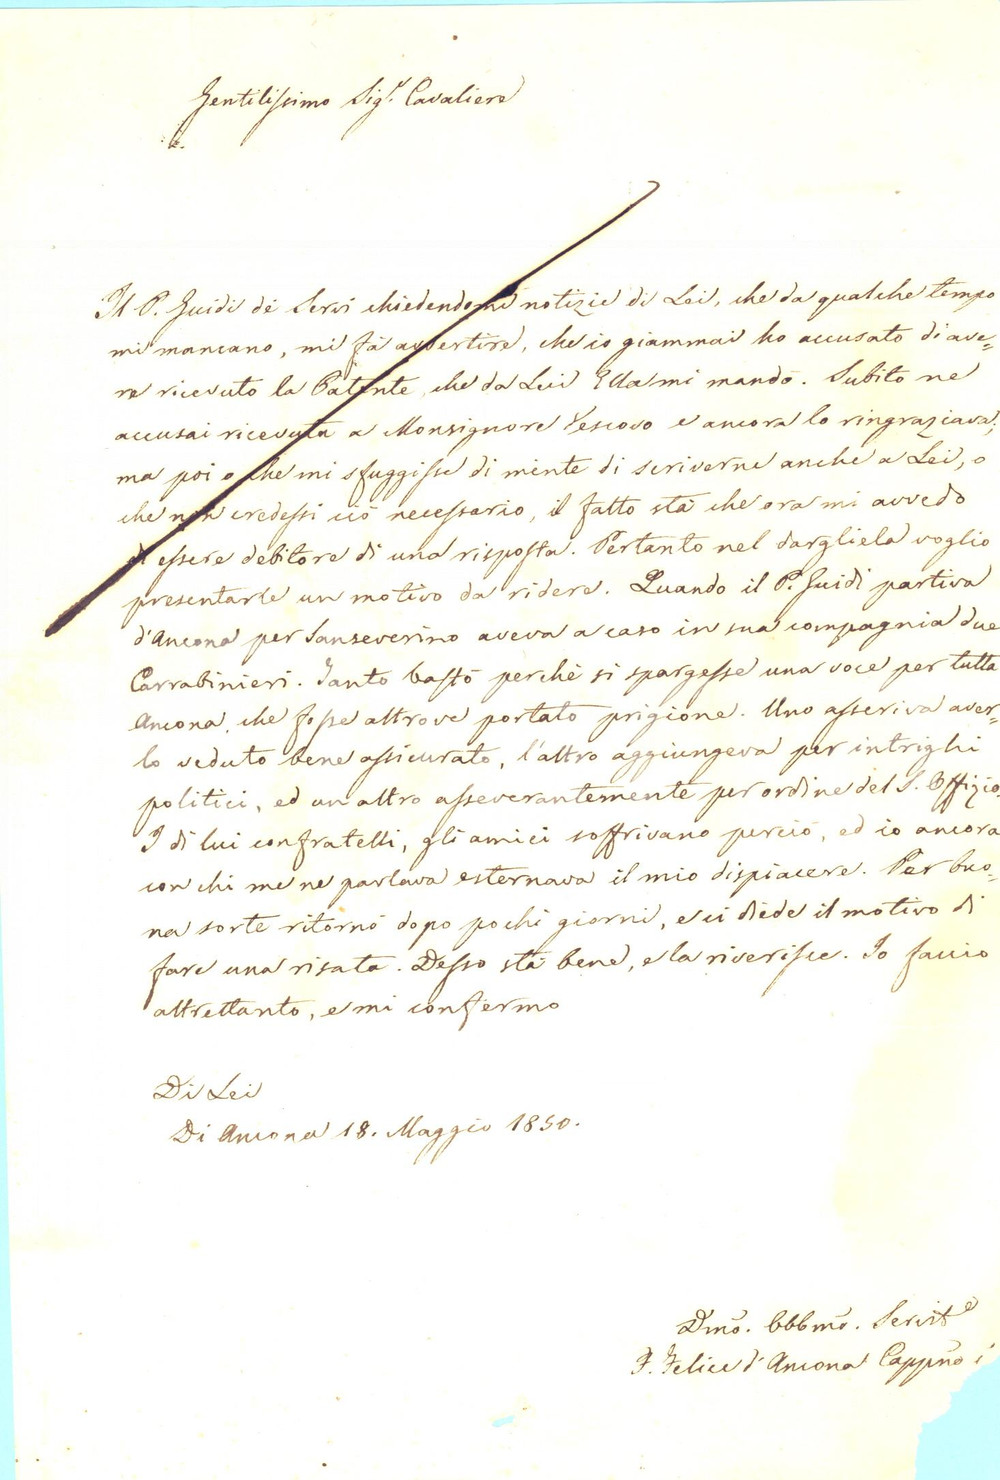 Gentilissimo Sig.r Cavaliere
Il P. Guidi de Servi chiedendomi notizie di Lei, che da qualche tempo
mi mancano, mi fà avvertire, che io giammai ho accusato di ave-
re ricevuto la Patente, che da Lei Ella mi mandò. Subito ne
accusai ricevuta a Monsignore Vescovo e ancora lo ringraziava;
ma poi o che mi sfuggisse di mente di scriverne anche a Lei, o
che non credessi ciò necessario, il fatto stà che ora mi avvedo
di essere debitore di una risposta. Pertanto nel dargliela voglio
presentarle un motivo da ridere. Quando il P. Guidi partiva
d'Ancona per Sanseverino aveva a caso in sua compagnia due
Carrabinieri. Tanto bastò perchè si spargesse una voce per tutta
Ancona, che fosse altrove portato prigione. Uno asseriva aver-
lo veduto bene assicurato, l'altro aggiungeva per intrighi
politici, ed un altro asseverantemente per ordine del S. Offizio.
I di lui confratelli, gli amici soffrivano perciò, ed io ancora
con chi me ne parlava esternava il mio dispiacere. Per buo-
na sorte ritornò dopo pochi giorni, e ci diede il motivo di
fare una risata. Desso stà bene, e la riverisce. Io faccio
altrettanto, e mi confermo
Di Lei
Di Ancona 18. Maggio 1850.
Dmõ. Obbmõ. Servit.e
F. Felice d'Ancona Cappnõ